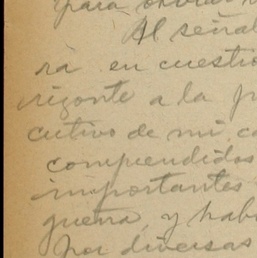 para obviar
Al señal
rá en cuestio
rizonte a la p
cutivo de mi ca
comprendidos
importantes
guerra, y habi
por diversas